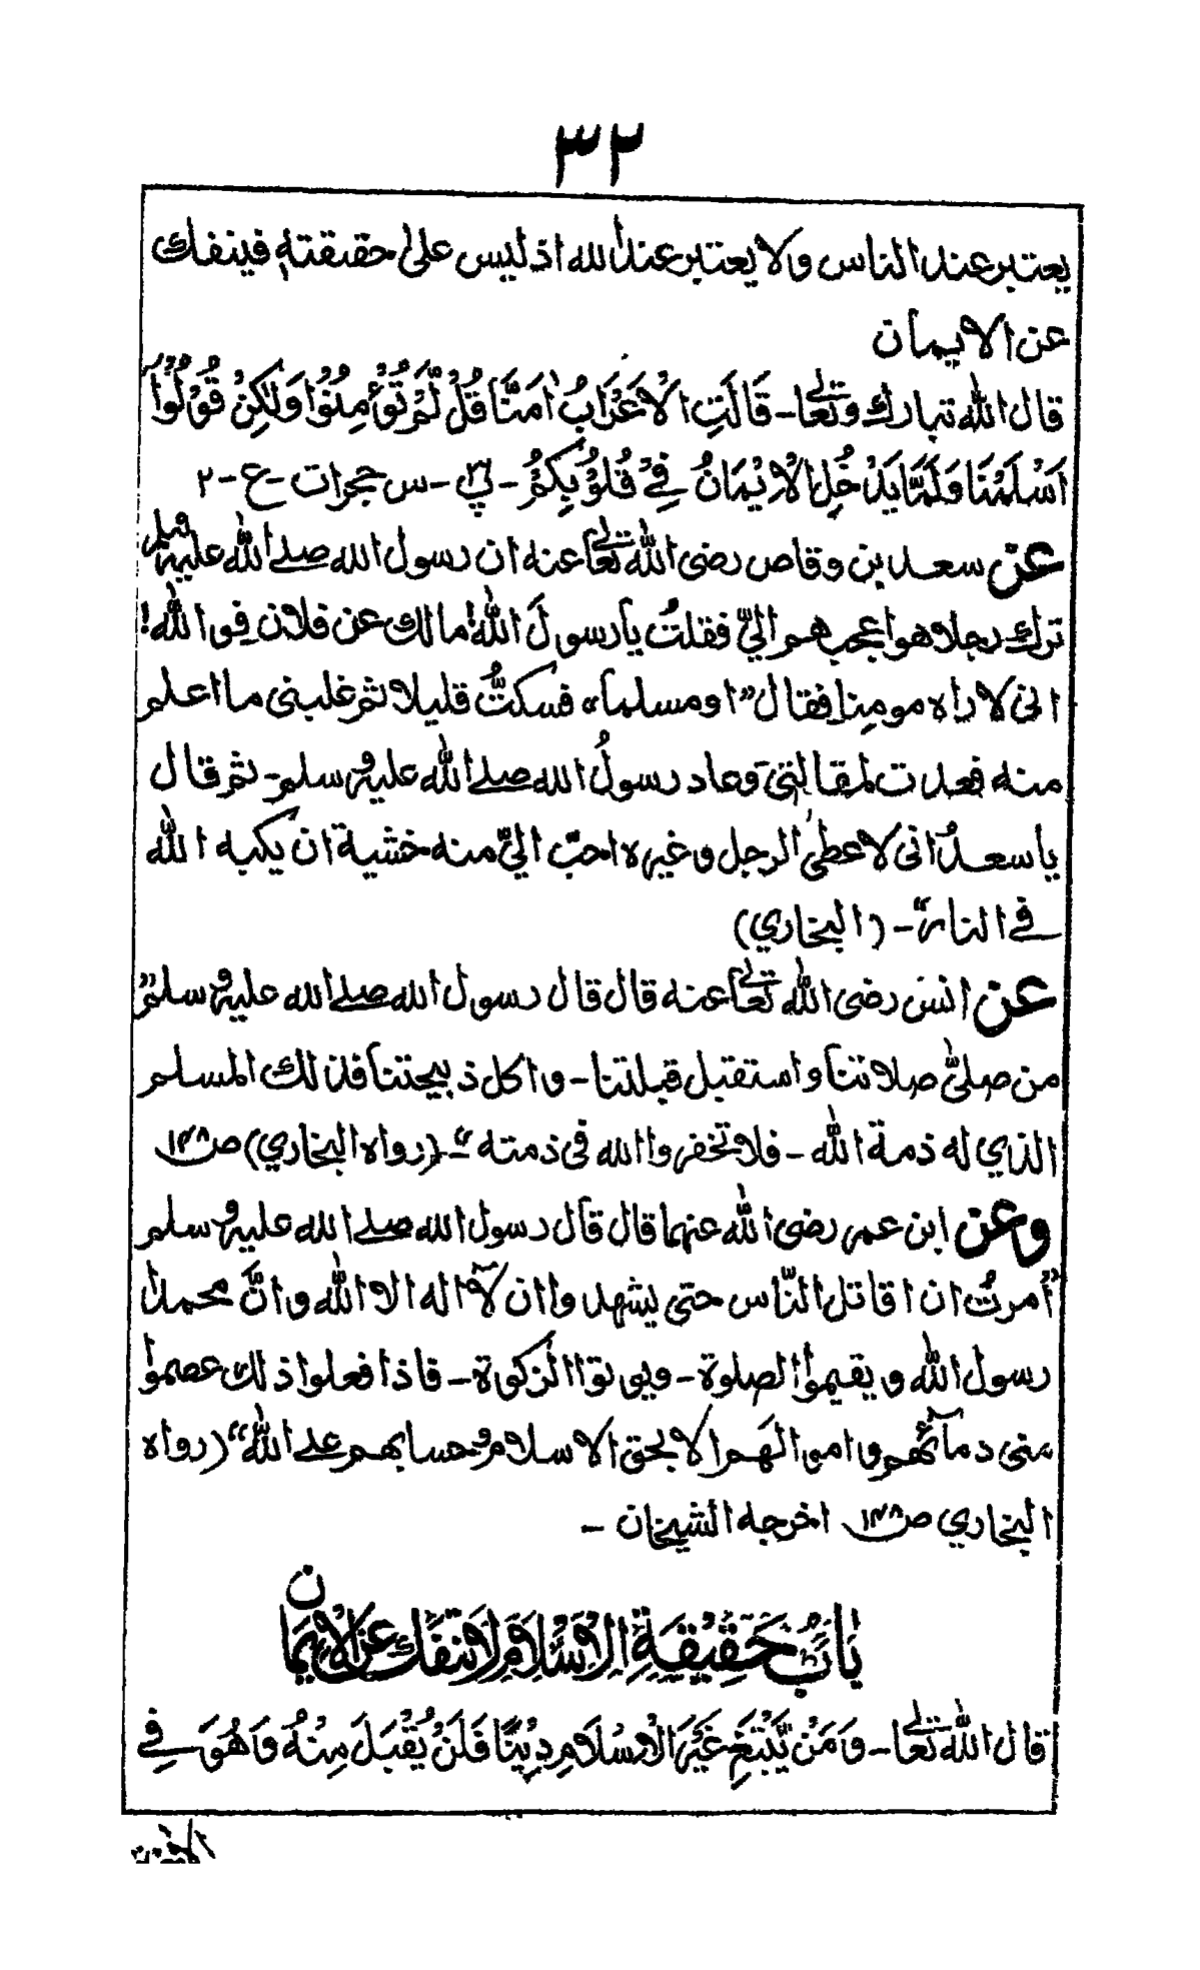 ٣٢
يعتبر عند الناس ولا يعتبر عند الله اذ ليس على حقيقته فينفك
عن الايمان
قال الله تبارك وتعالى - قَالَتِ الْاَعْرَابُ اٰمَنَّا قُلْ لَّمْ تُؤْمِنُوْا وَلٰكِنْ قُوْلُوْٓا
اَسْلَمْنَا وَلَمَّا يَدْخُلِ الْاِيْمَانُ فِيْ قُلُوْبِكُمْ - س حجرات - ع - ٢
عن سعد بن وقاص رضى الله تعالى عنه ان رسول الله صلے الله عليه وسلم
ترك رجلا هو اعجبهم اليّ فقلتُ يا رسولَ الله! مالك عن فلان فوالله!
انى لاراه مومنا فقال "او مسلما" فسكتُّ قليلا ثم غلبنى ما اعلم
منه فعدت لمقالتى وعاد رسولُ الله صلے الله عليه وسلم - ثم قال
يا سعدُ انى لاعطى الرجل وغيره احبّ اليّ منه خشية ان يكبه الله
فے النار" - (البخاري)
عن انس رضى الله تعالى عنه قال قال رسول الله صلے الله عليه وسلم "
من صلىّ صلاتنا واستقبل قبلتنا - واكل ذبيحتنا فذلك المسلم
الذي له ذمة الله - فلا تخفروا الله فى ذمته " - (رواه البخاري) ص
وعن ابن عمر رضى الله عنهما قال قال رسول الله صلے الله عليه وسلم
"اُمرتُ ان اقاتل النّاس حتى يشهدوا ان لآ اله الا الله وانَّ محمدا
رسول الله ويقيموا الصلوة - ويوتوا الزكوة - فاذا فعلوا ذلك عصموا
منى دمآئهم واموالهم الا بحق الاسلام وحسابهم علے الله" (رواه
البخاري ص اخرجه الشيخان -
بَابُ حَقِيْقَةِ الْاِسْلَامِ لَا تَنفَكُّ عَنِ الْاِيمَانِ
قال الله تعالى - وَمَنْ يَّبْتَغِ غَيْرَ الْاِسْلَامِ دِيْنًا فَلَنْ يُقْبَلَ مِنْهُ وَهُوَ فِے